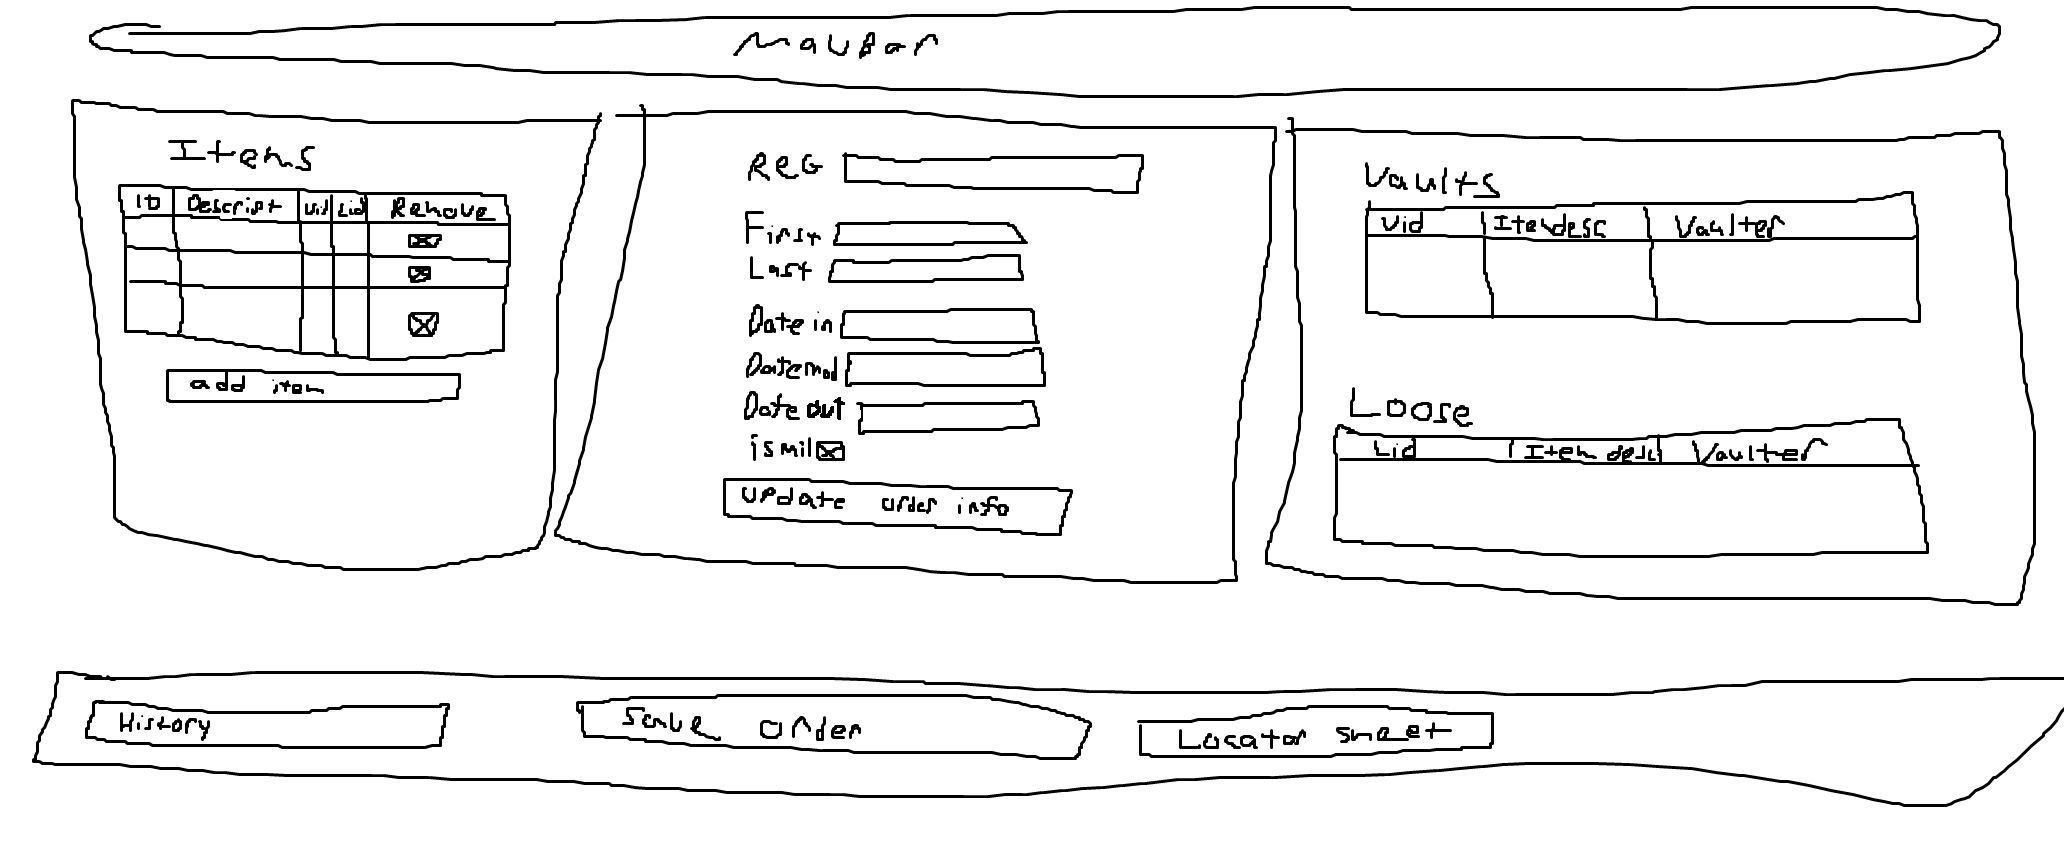 NavBar
Items
ID Descript Vid Lid Remove
add item
REG
First
Last
Date in
Datemod
Date out
ismil
update order info
Vaults
Vid Itemdesc Vaulter
Loose
Lid Item desc Vaulter
History
Save order
Locator sheet